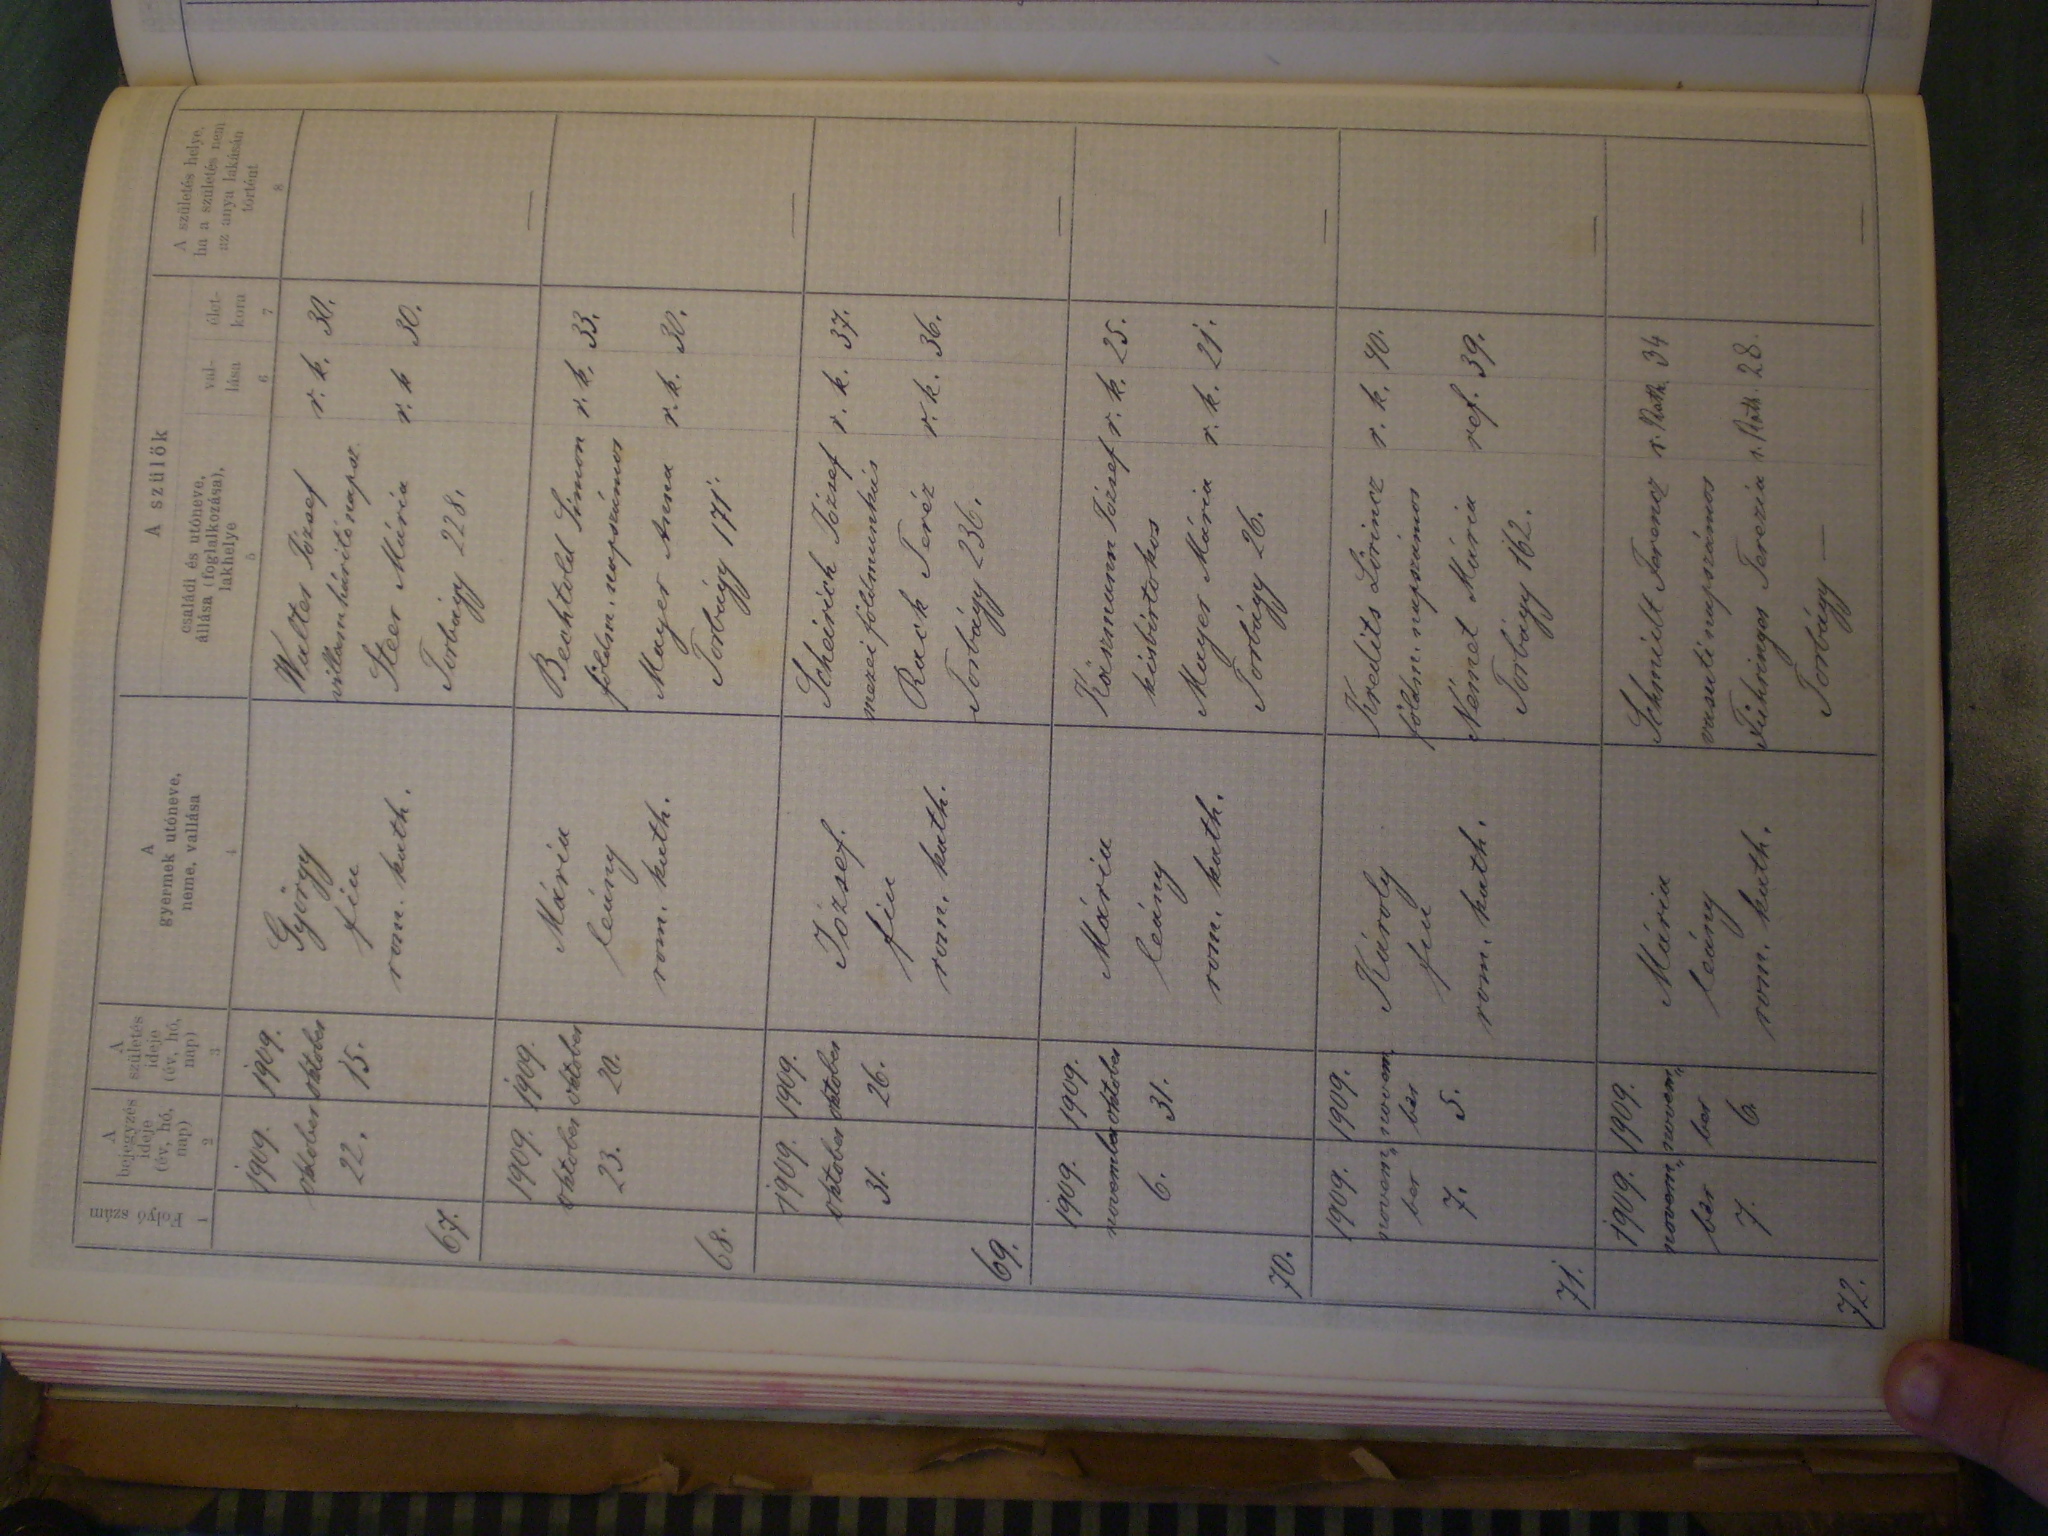 Folyó szám
1
A bejegyzés ideje (év, hó, nap)
2
A születés ideje (év, hó, nap)
3
A gyermek utóneve, neme, vallása
4
A szülők
családi és utóneve, állása (foglalkozása), lakhelye
5
val-lása
6
élet-kora
7
A születés helye, ha a születés nem az anya lakásán történt
8
67.
1909. október 22.
1909. október 15.
György
fiu
rom. kath.
Walter József r. k. 30.
villamhárító napsz.
Steer Mária r. k 30.
Torbágy 228.
—
68.
1909. október 23.
1909. október 20.
Mária
leány
rom. kath.
Bechtold Simon r. k. 33.
földm. napszámos
Mayer Anna r. k. 30.
Torbágy 171.
—
69.
1909. október 31.
1909. október 26.
József.
fiu
rom. kath.
Scheirich József r. k. 37.
mezei földmunkás
Rack Teréz r. k. 36.
Torbágy 236.
—
70.
1909. november 6.
1909. október 31.
Mária
leány
rom. kath.
Közmann József r. k. 25.
kisbirtokos
Mayer Mária r. k. 21.
Torbágy 26.
—
71.
1909. novem„ber 7.
1909. novem„ber 5.
Károly
fiu
rom. kath.
Kredits Lőrincz r. k. 40.
földm. napszámos
Német Mária ref. 39.
Torbágy 162.
—
72.
1909. novem„ber 7.
1909. novem„ber 6.
Mária
leány
rom. kath.
Schmidt Ferencz r. Kath. 34
vasuti napszámos
Führinger Terezia r. Kath. 28.
Torbágy —
—